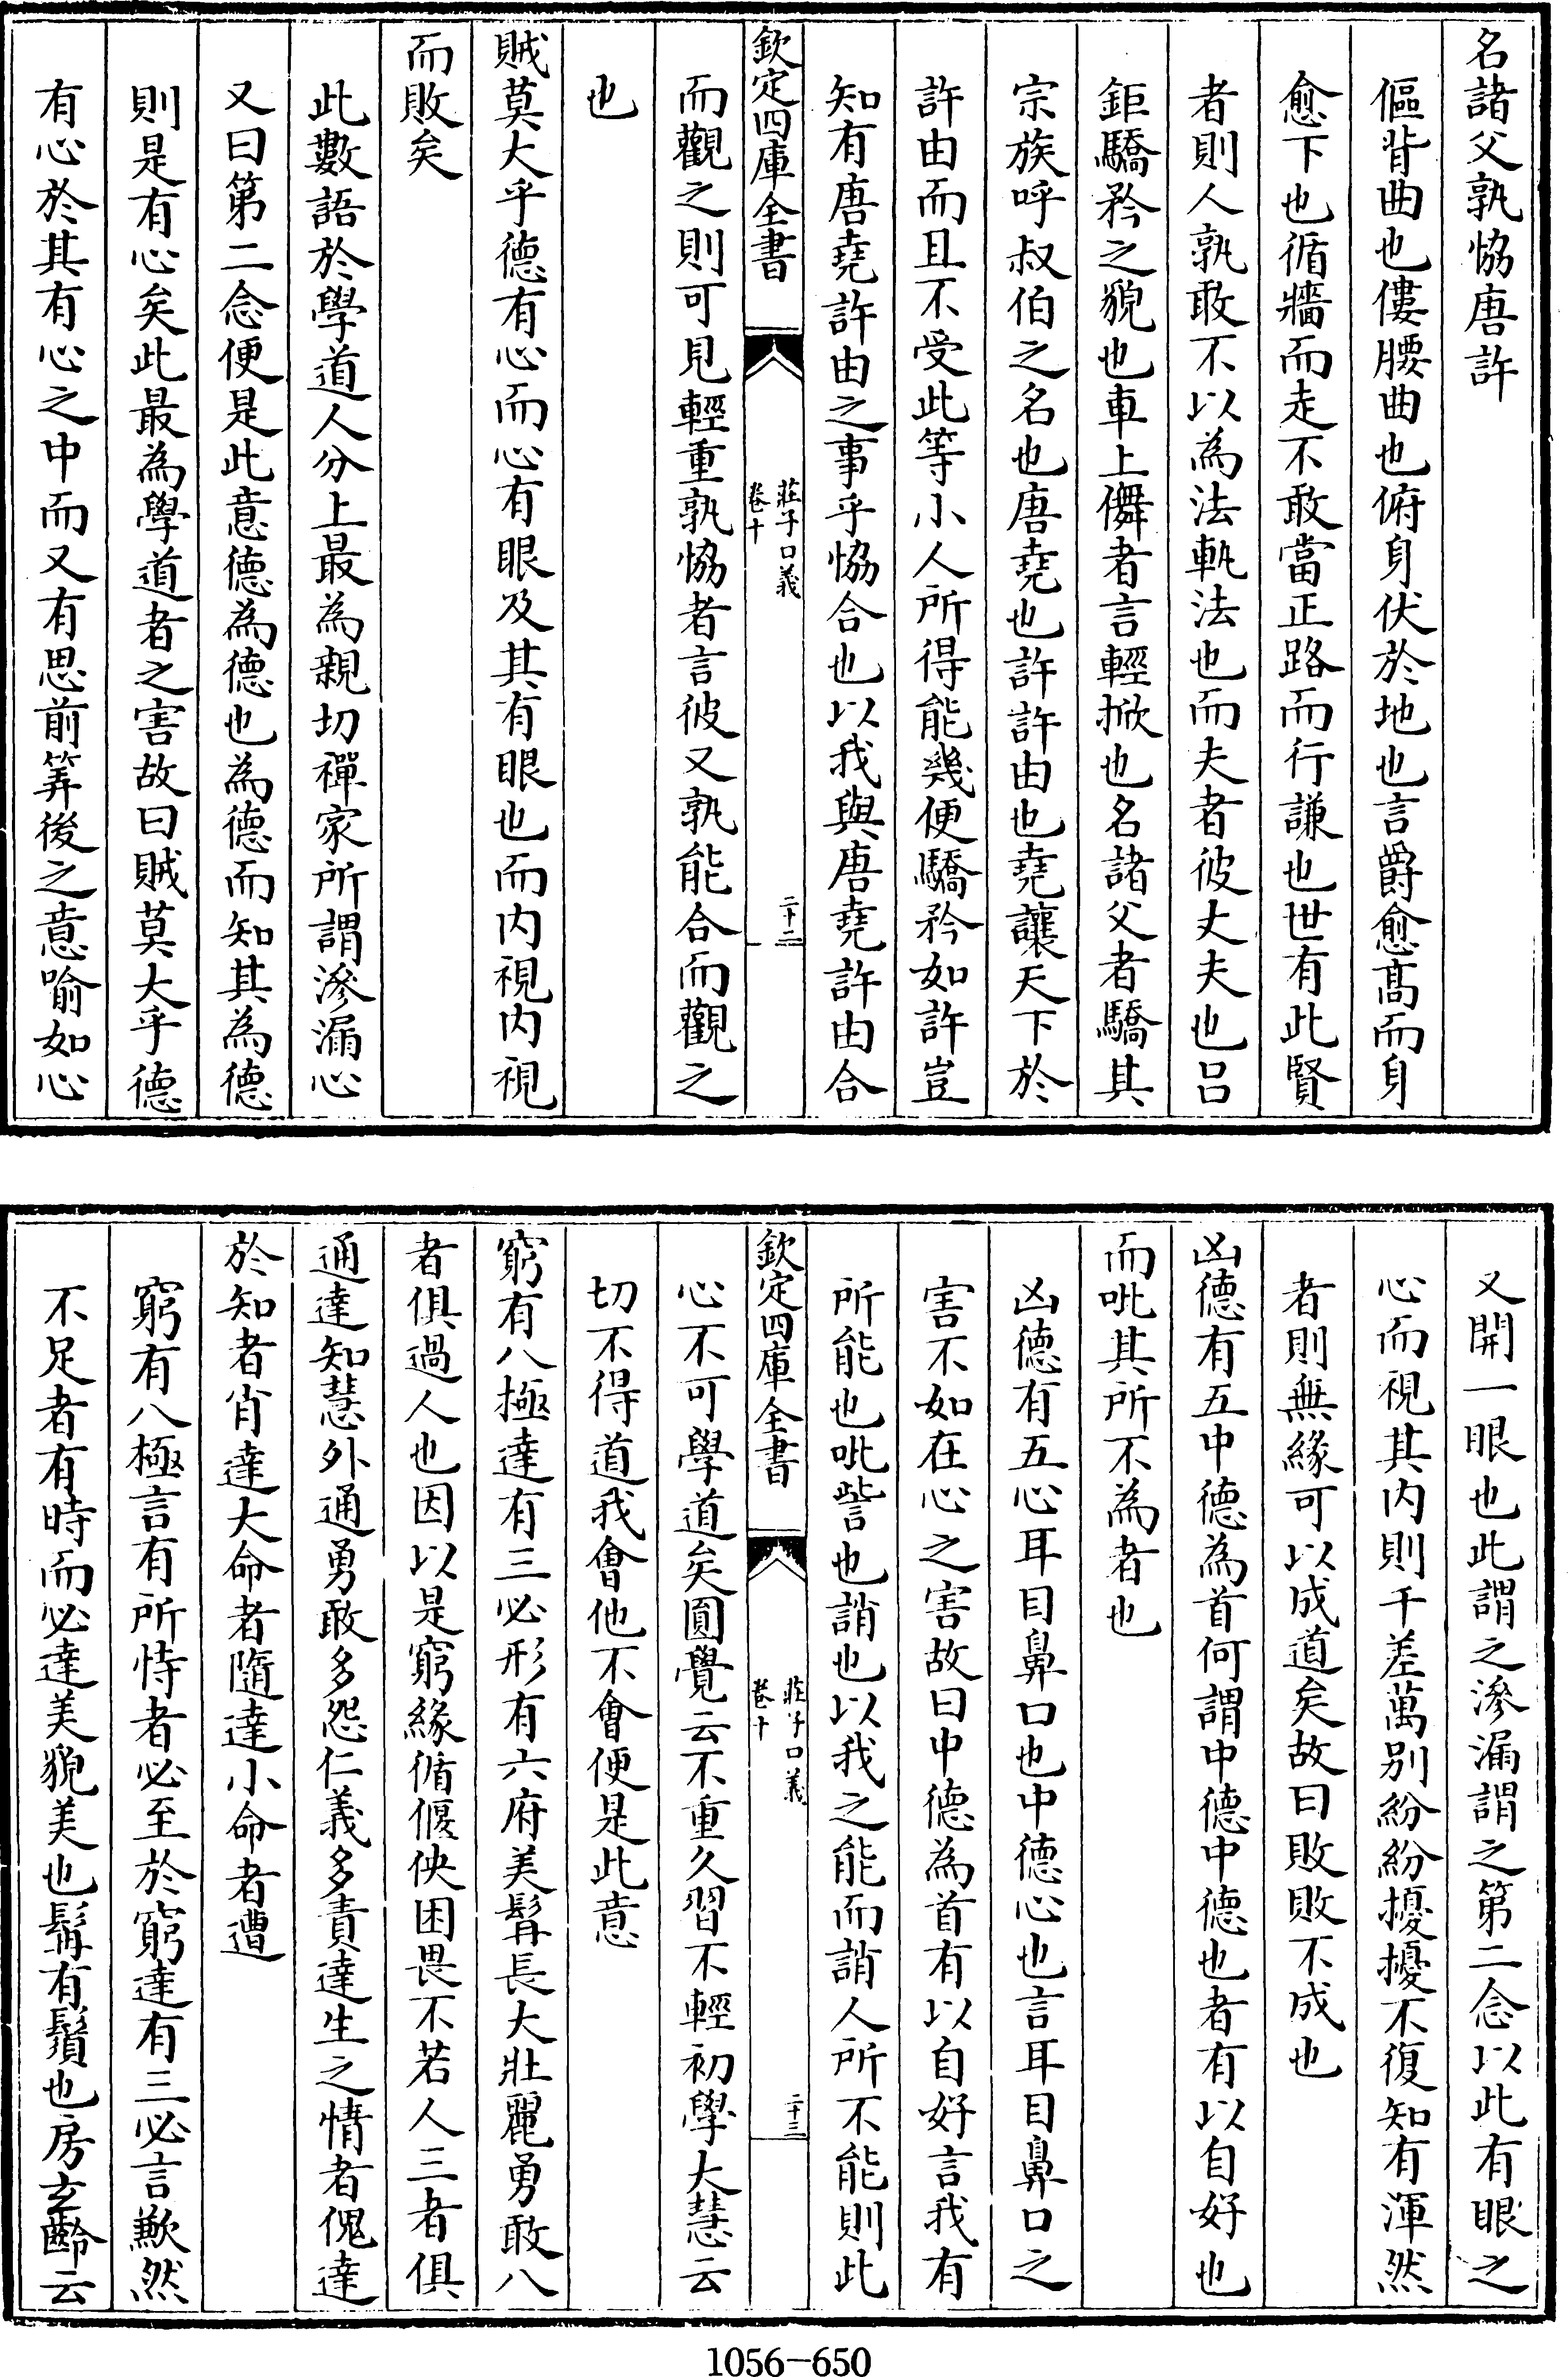 名諸父孰恊唐許
傴背曲也僂腰曲也俯身伏於地也言爵愈髙而身
愈下也循牆而走不敢當正路而行謙也世有此賢
者則人孰敢不以為法軌法也而夫者彼丈夫也吕
鉅驕矜之貌也車上儛者言輕掀也名諸父者驕其
宗族呼叔伯之名也唐堯也許許由也堯讓天下於
許由而且不受此等小人所得能幾便驕矜如許豈
知有唐堯許由之事乎恊合也以我與唐堯許由合
欽定四庫全書
莊子口義
卷十
二十二
而觀之則可見輕重孰恊者言彼又孰能合而觀之
也
賊莫大乎德有心而心有眼及其有眼也而内視内視
而敗矣
此數語於學道人分上最為親切禪家所謂滲漏心
又曰第二念便是此意德為德也為德而知其為德
則是有心矣此最為學道者之害故曰賊莫大乎德
有心於其有心之中而又有思前筭後之意喻如心
又開一眼也此謂之滲漏謂之第二念以此有眼之
心而視其内則千差萬别紛紛擾擾不復知有渾然
者則無緣可以成道矣故曰敗敗不成也
凶德有五中德為首何謂中德中德也者有以自好也
而吡其所不為者也
凶德有五心耳目鼻口也中德心也言耳目鼻口之
害不如在心之害故曰中德為首有以自好言我有
所能也吡訾也誚也以我之能而誚人所不能則此
欽定四庫全書
莊子口義
卷十
二十三
心不可學道矣圓覺云不重久習不輕初學大慧云
切不得道我會他不會便是此意
窮有八極達有三必形有六府美髯長大壯麗勇敢八
者俱過人也因以是窮緣循偃佒困畏不若人三者俱
通達知慧外通勇敢多怨仁義多責達生之情者傀達
於知者肖達大命者隨達小命者遭
窮有八極言有所恃者必至於窮達有三必言歉然
不足者有時而必達美貌美也髯有鬚也房玄齡云
1056-650